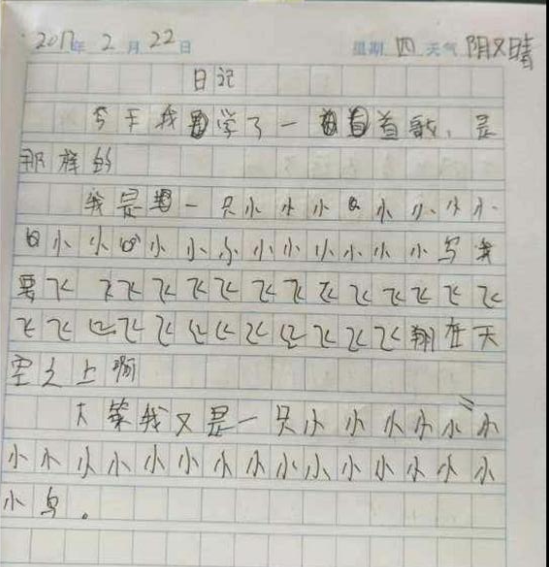 2017年 2 月 22 日 星期 四 天气 阴又晴
日记
今天我学了一首歌，是
那样的
我是一只小小小小小小小
小小小小小小小小小小小鸟我
要飞飞飞飞飞飞飞飞飞飞飞飞飞
飞飞飞飞飞飞飞飞飞飞飞飞翔在天
空之上啊
我又是一只小小小小小小
小小小小小小小小小小小小小小小
小鸟。